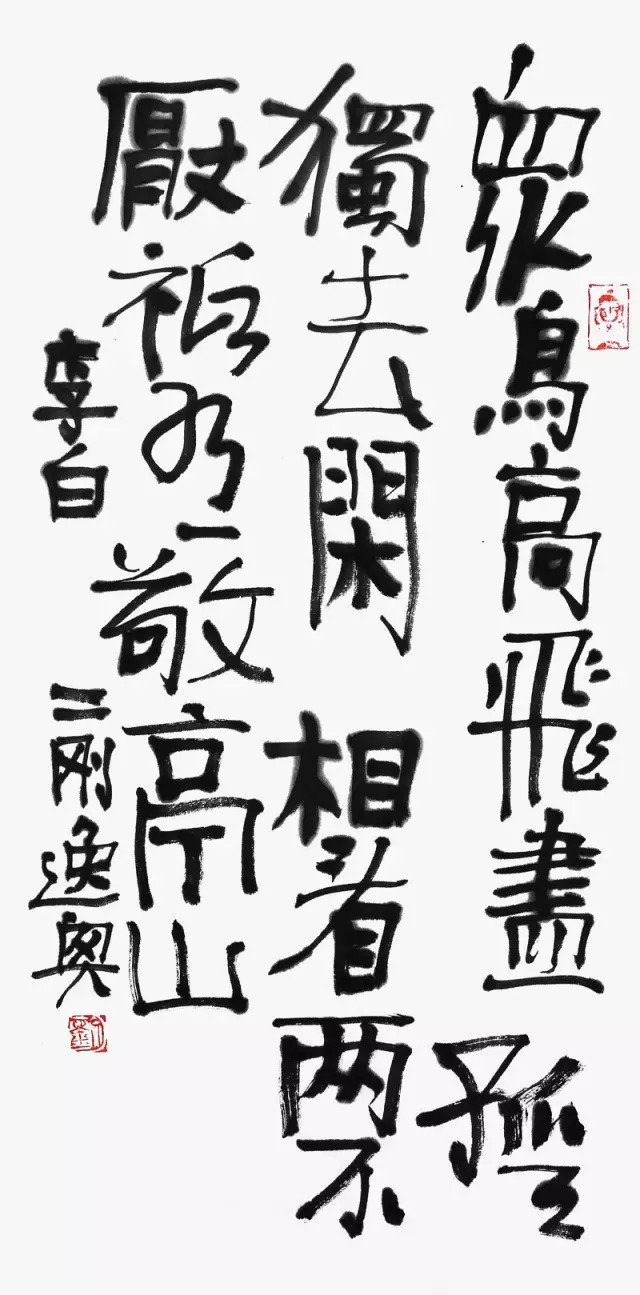 眾鳥高飛盡 孤云
獨去閑 相看两不
厭祗有敬亭山
李白 二刚逸興